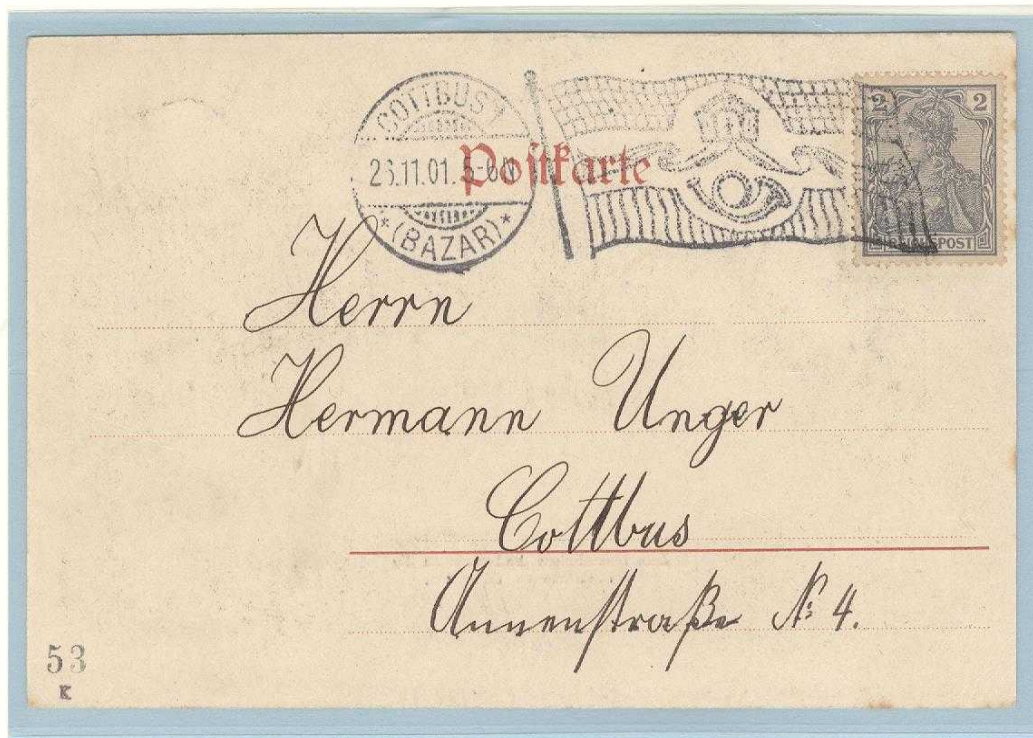 COTTBUS 1
26.11.01. 5-6N
*(BAZAR)*
Postkarte
2 2
REICHSPOST
Herrn
Hermann Unger
Cottbus
Annenstraße № 4.
53
K